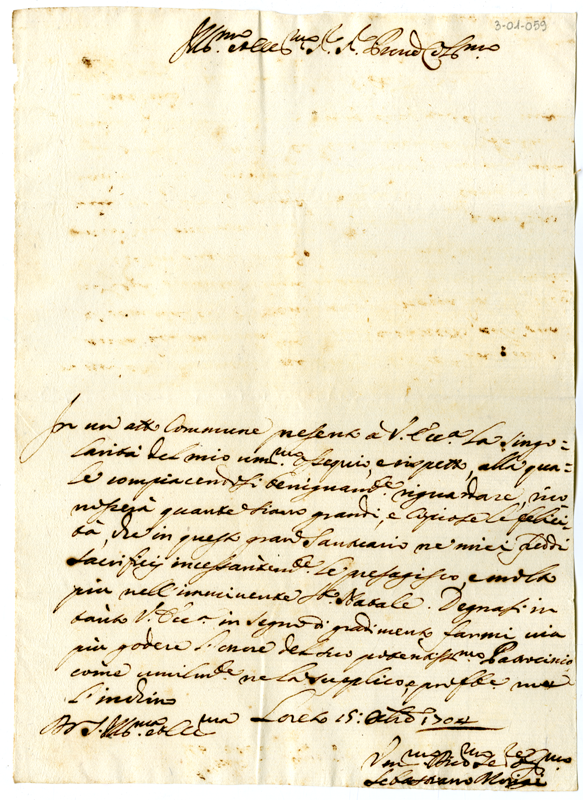 3-01-059
Ill.mo et Ecc.mo S.r S.r Prone Col.mo
In un atto commune presento à V. Ecc.a la singo=
larità del mio um.mo ossequio, e rispetto, alla qua=
le compiacendosi benignam.te riguardare,
quante siano grandi, e copiose le felici=
tà, che in questo gran Santuario ne miei freddi
sacrificij incessantem.te le presagisco, e molto
più nell'imminente S.to Natale. Degnasi in
tanto V. Ecc.a in segno di gradimento farmi via
più godere l'onore del suo potentiss.mo Patrocinio
come umilm.te ne la supplico, e
l'inchino
Di V.S. Ill.ma et Ecc.ma Loreto 15: Xbre 1704
Um.mo Dev.mo
Sebastiano